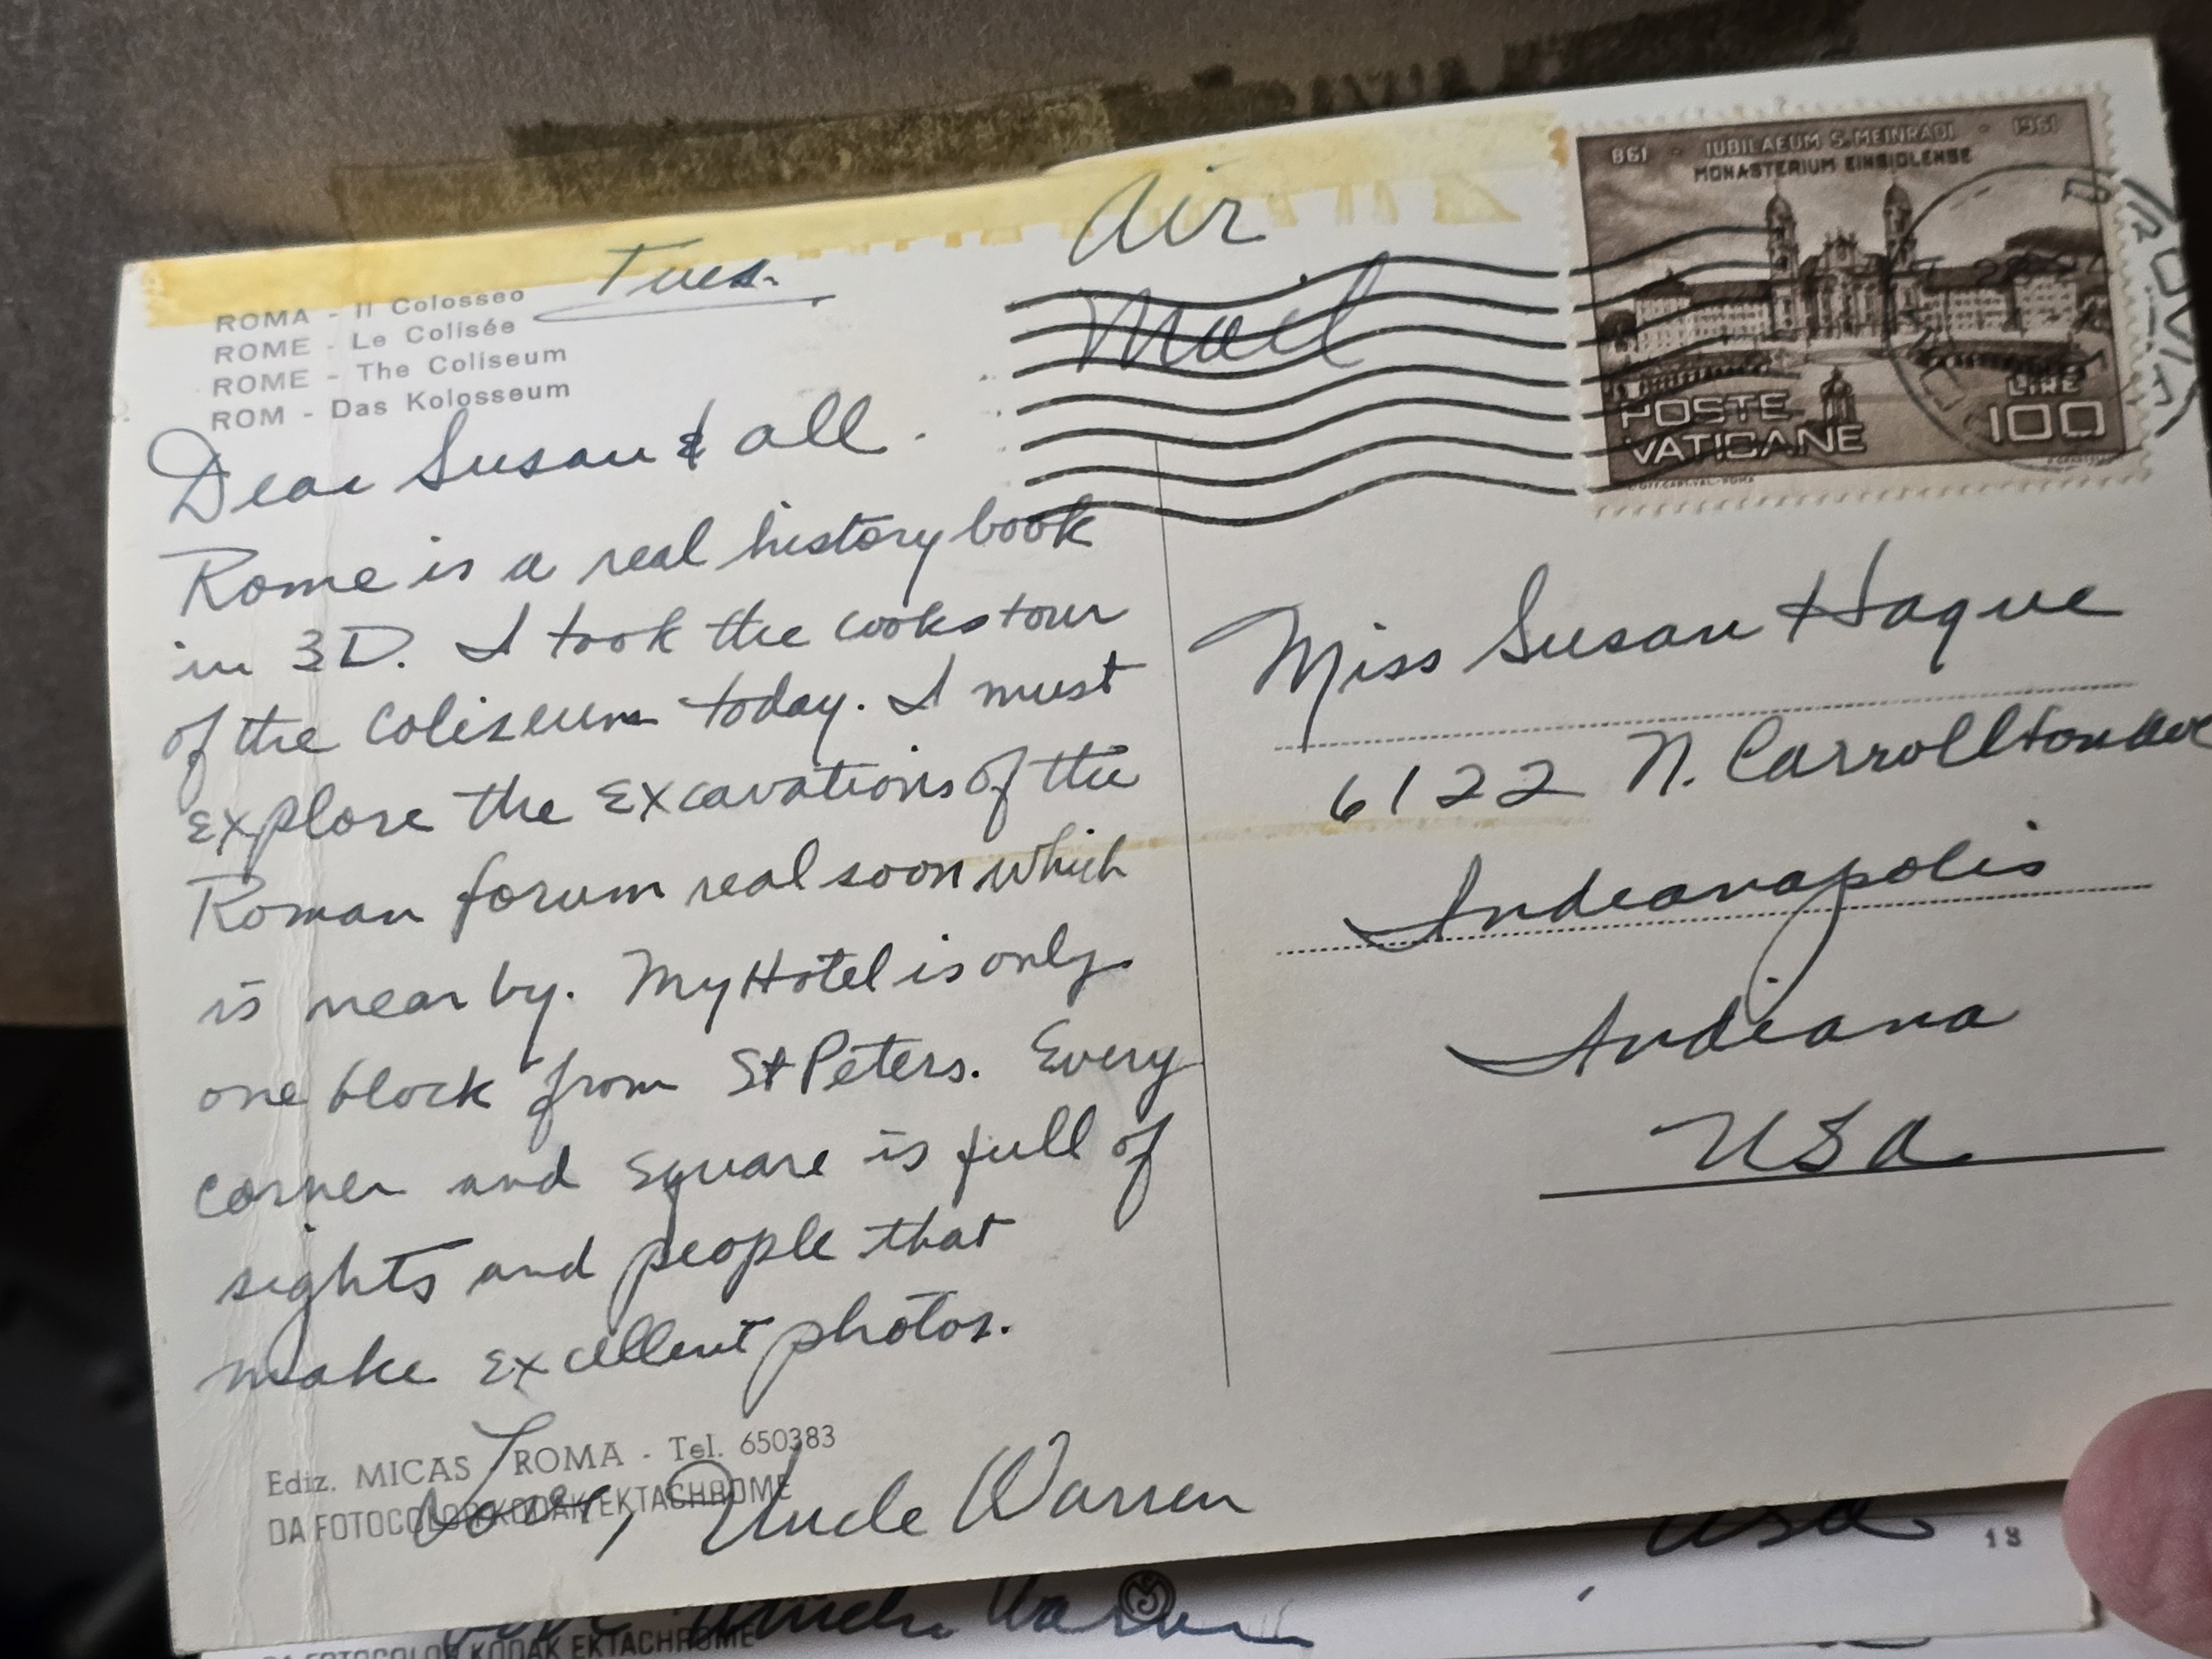 Tues.
ROMA - Il Colosseo
ROME - Le Colisée
ROME - The Coliseum
ROM - Das Kolosseum
Dear Susan & all.
Rome is a real history book
in 3D. I took the cooks tour
of the coliseum today. I must
explore the excavations of the
Roman forum real soon which
is near by. My Hotel is only
one block from St Peters. Every
corner and square is full of
sights and people that
make excellent photos.
Love, Uncle Warren
Ediz. MICAS - ROMA - Tel. 650383
DA FOTOCOLOR KODAK EKTACHROME
Air
Mail
861 - IUBILAEUM S. MEINRADI - 1961
MONASTERIUM EINSIDLENSE
POSTE
VATICANE
LIRE
100
Miss Susan Hague
6122 N. Carrollton Ave
Indianapolis
Indiana
USA
USA
13
Love Uncle Warren
DA FOTOCOLOR KODAK EKTACHROME